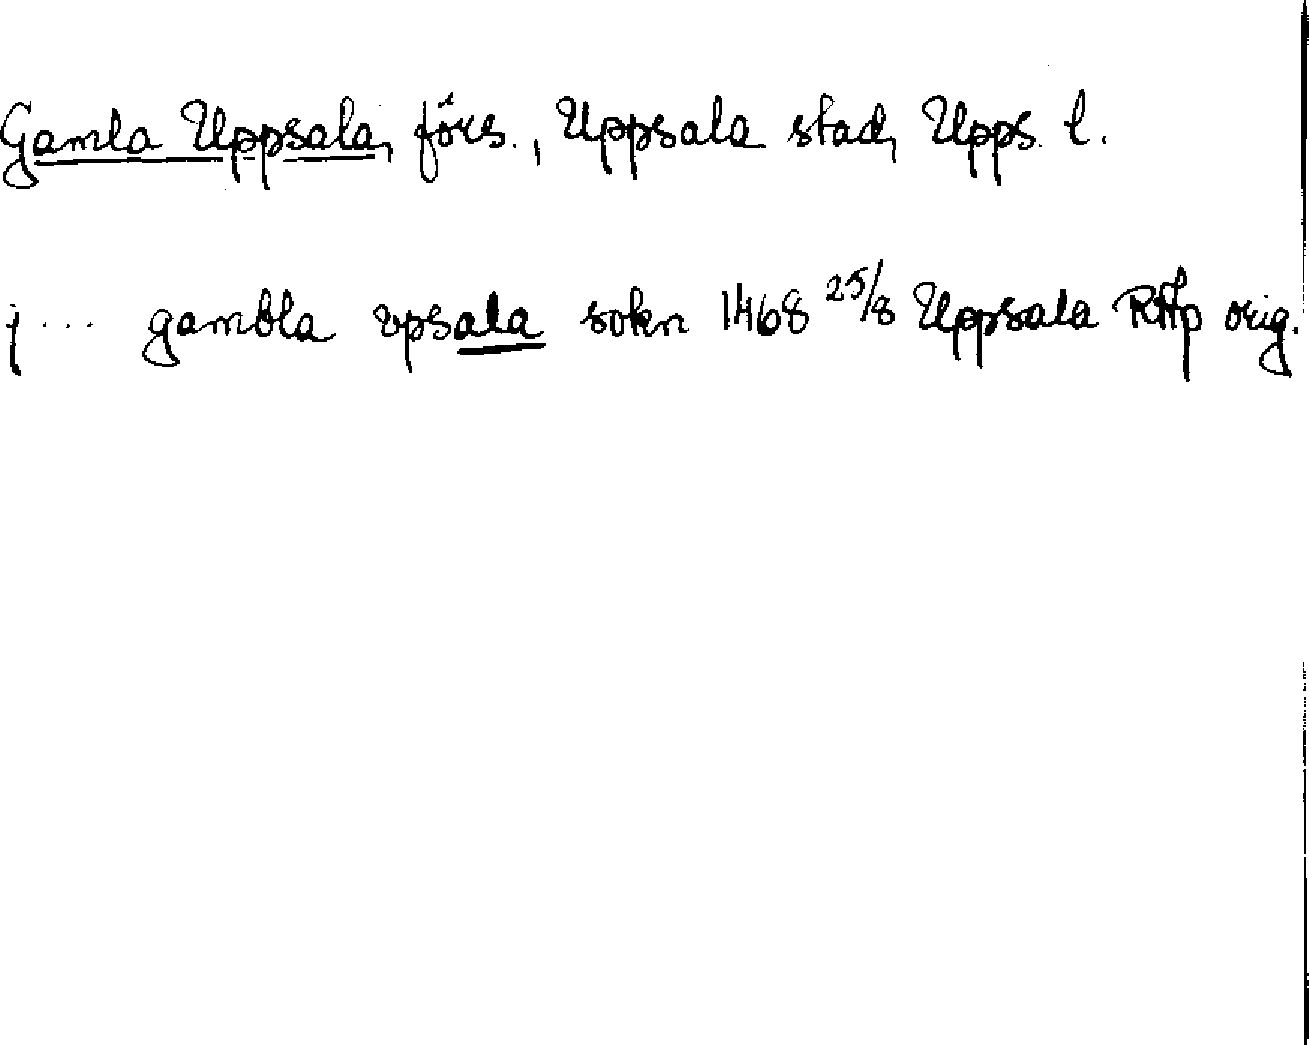 Gamla Uppsala, förs., Uppsala stad, Upps. l.
j ... gambla vpsala sokn 1468 25/8 Uppsala RAp orig.